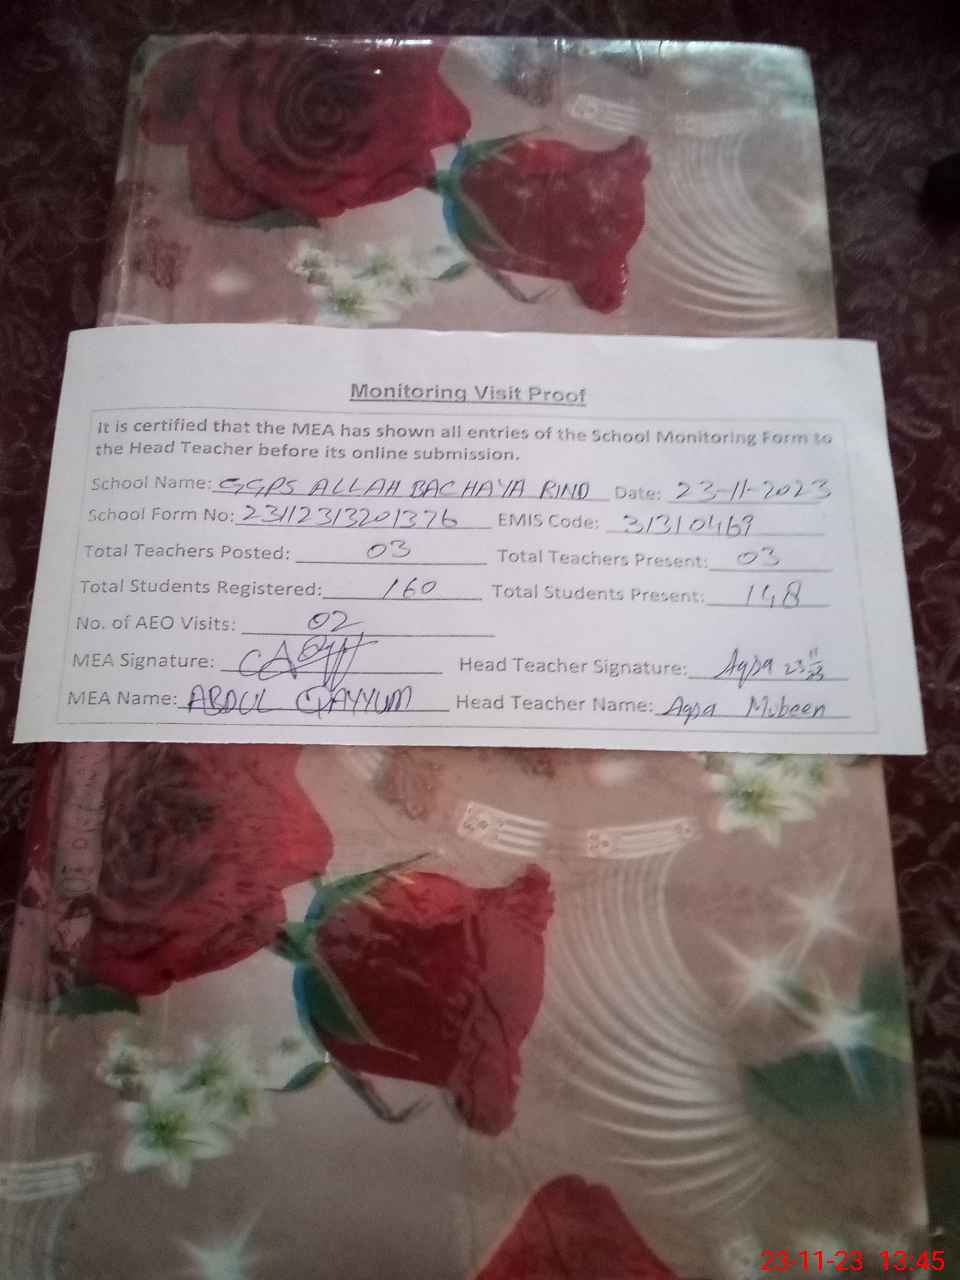 Monitoring Visit Proof
It is certified that the MEA has shown all entries of the School Monitoring Form to
the Head Teacher before its online submission.
School Name: GGPS ALLAH BACHAYA RIND Date: 23-11-2023
School Form No: 23112313201376 EMIS Code: 31310469
Total Teachers Posted: 03 Total Teachers Present: 03
Total Students Registered: 160 Total Students Present: 148
No. of AEO Visits: 02
MEA Signature: Head Teacher Signature: Aqsa 23
MEA Name: ABDUL QAYYUM Head Teacher Name: Aqsa Mubeen
23-11-23 13:45